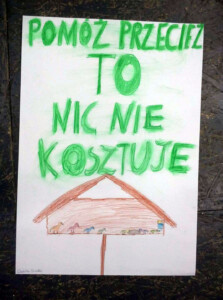 POMÓŻ PRZECIEŻ
TO
NIC NIE
KOSZTUJE